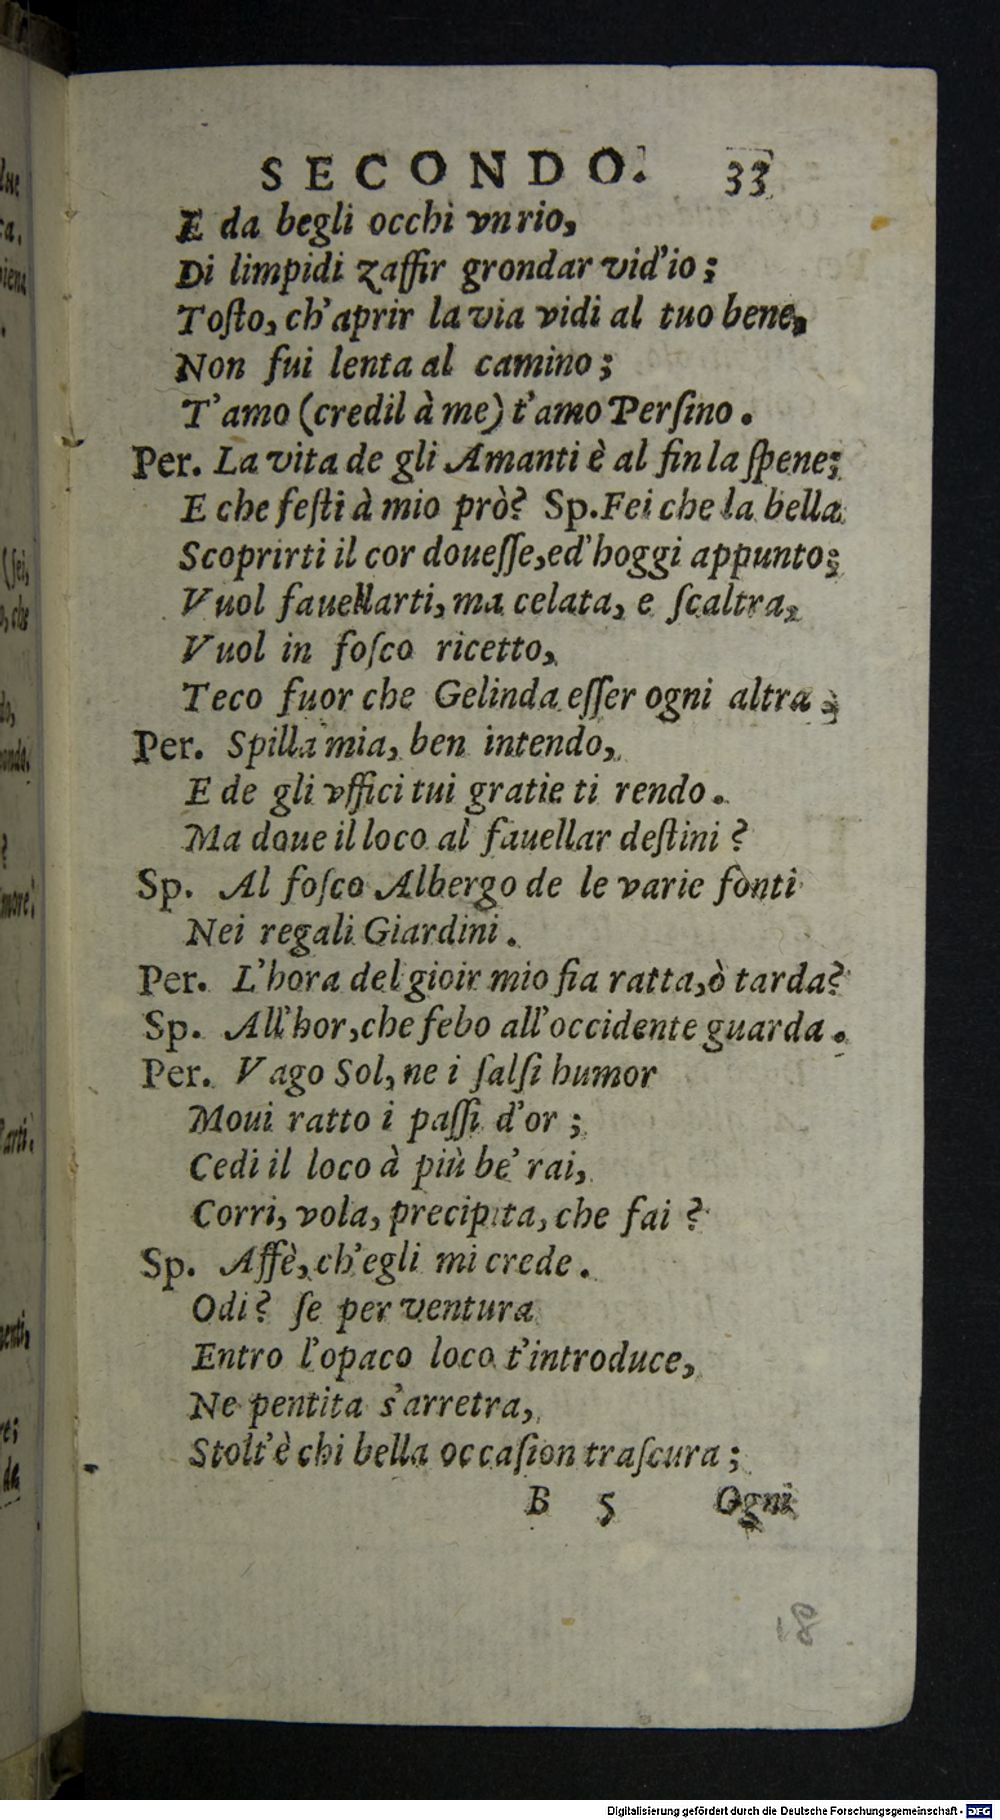 SECONDO. 33
E da begli occhi vn rio,
Di limpidi zaffir grondar vid'io;
Toſto, ch'aprir la via vidi al tuo bene,
Non fui lenta al camino;
T'amo (credil à me) t'amo Perſino.
Per. La vita de gli Amanti è al fin la ſpene;
E che feſti à mio prò? Sp. Fei che la bella
Scoprirti il cor doueſſe, ed'hoggi appunto;
Vuol fauellarti, ma celata, e ſcaltra,
Vuol in foſco ricetto,
Teco fuor che Gelinda eſſer ogni altra;
Per. Spilla mia, ben intendo,
E de gli vffici tui gratie ti rendo.
Ma doue il loco al fauellar deſtini?
Sp. Al foſco Albergo de le varie fonti
Nei regali Giardini.
Per. L'hora del gioir mio fia ratta, ò tarda?
Sp. All'hor, che febo all'occidente guarda.
Per. Vago Sol, ne i ſalſi humor
Moui ratto i paſſi d'or;
Cedi il loco à più be' rai,
Corri, vola, precipita, che fai?
Sp. Affè, ch'egli mi crede.
Odi? ſe per ventura
Entro l'opaco loco t'introduce,
Ne pentita s'arretra,
Stolt'è chi bella occaſion traſcura;
B 5 Ogni
Digitalisierung gefördert durch die Deutsche Forschungsgemeinschaft - DFG